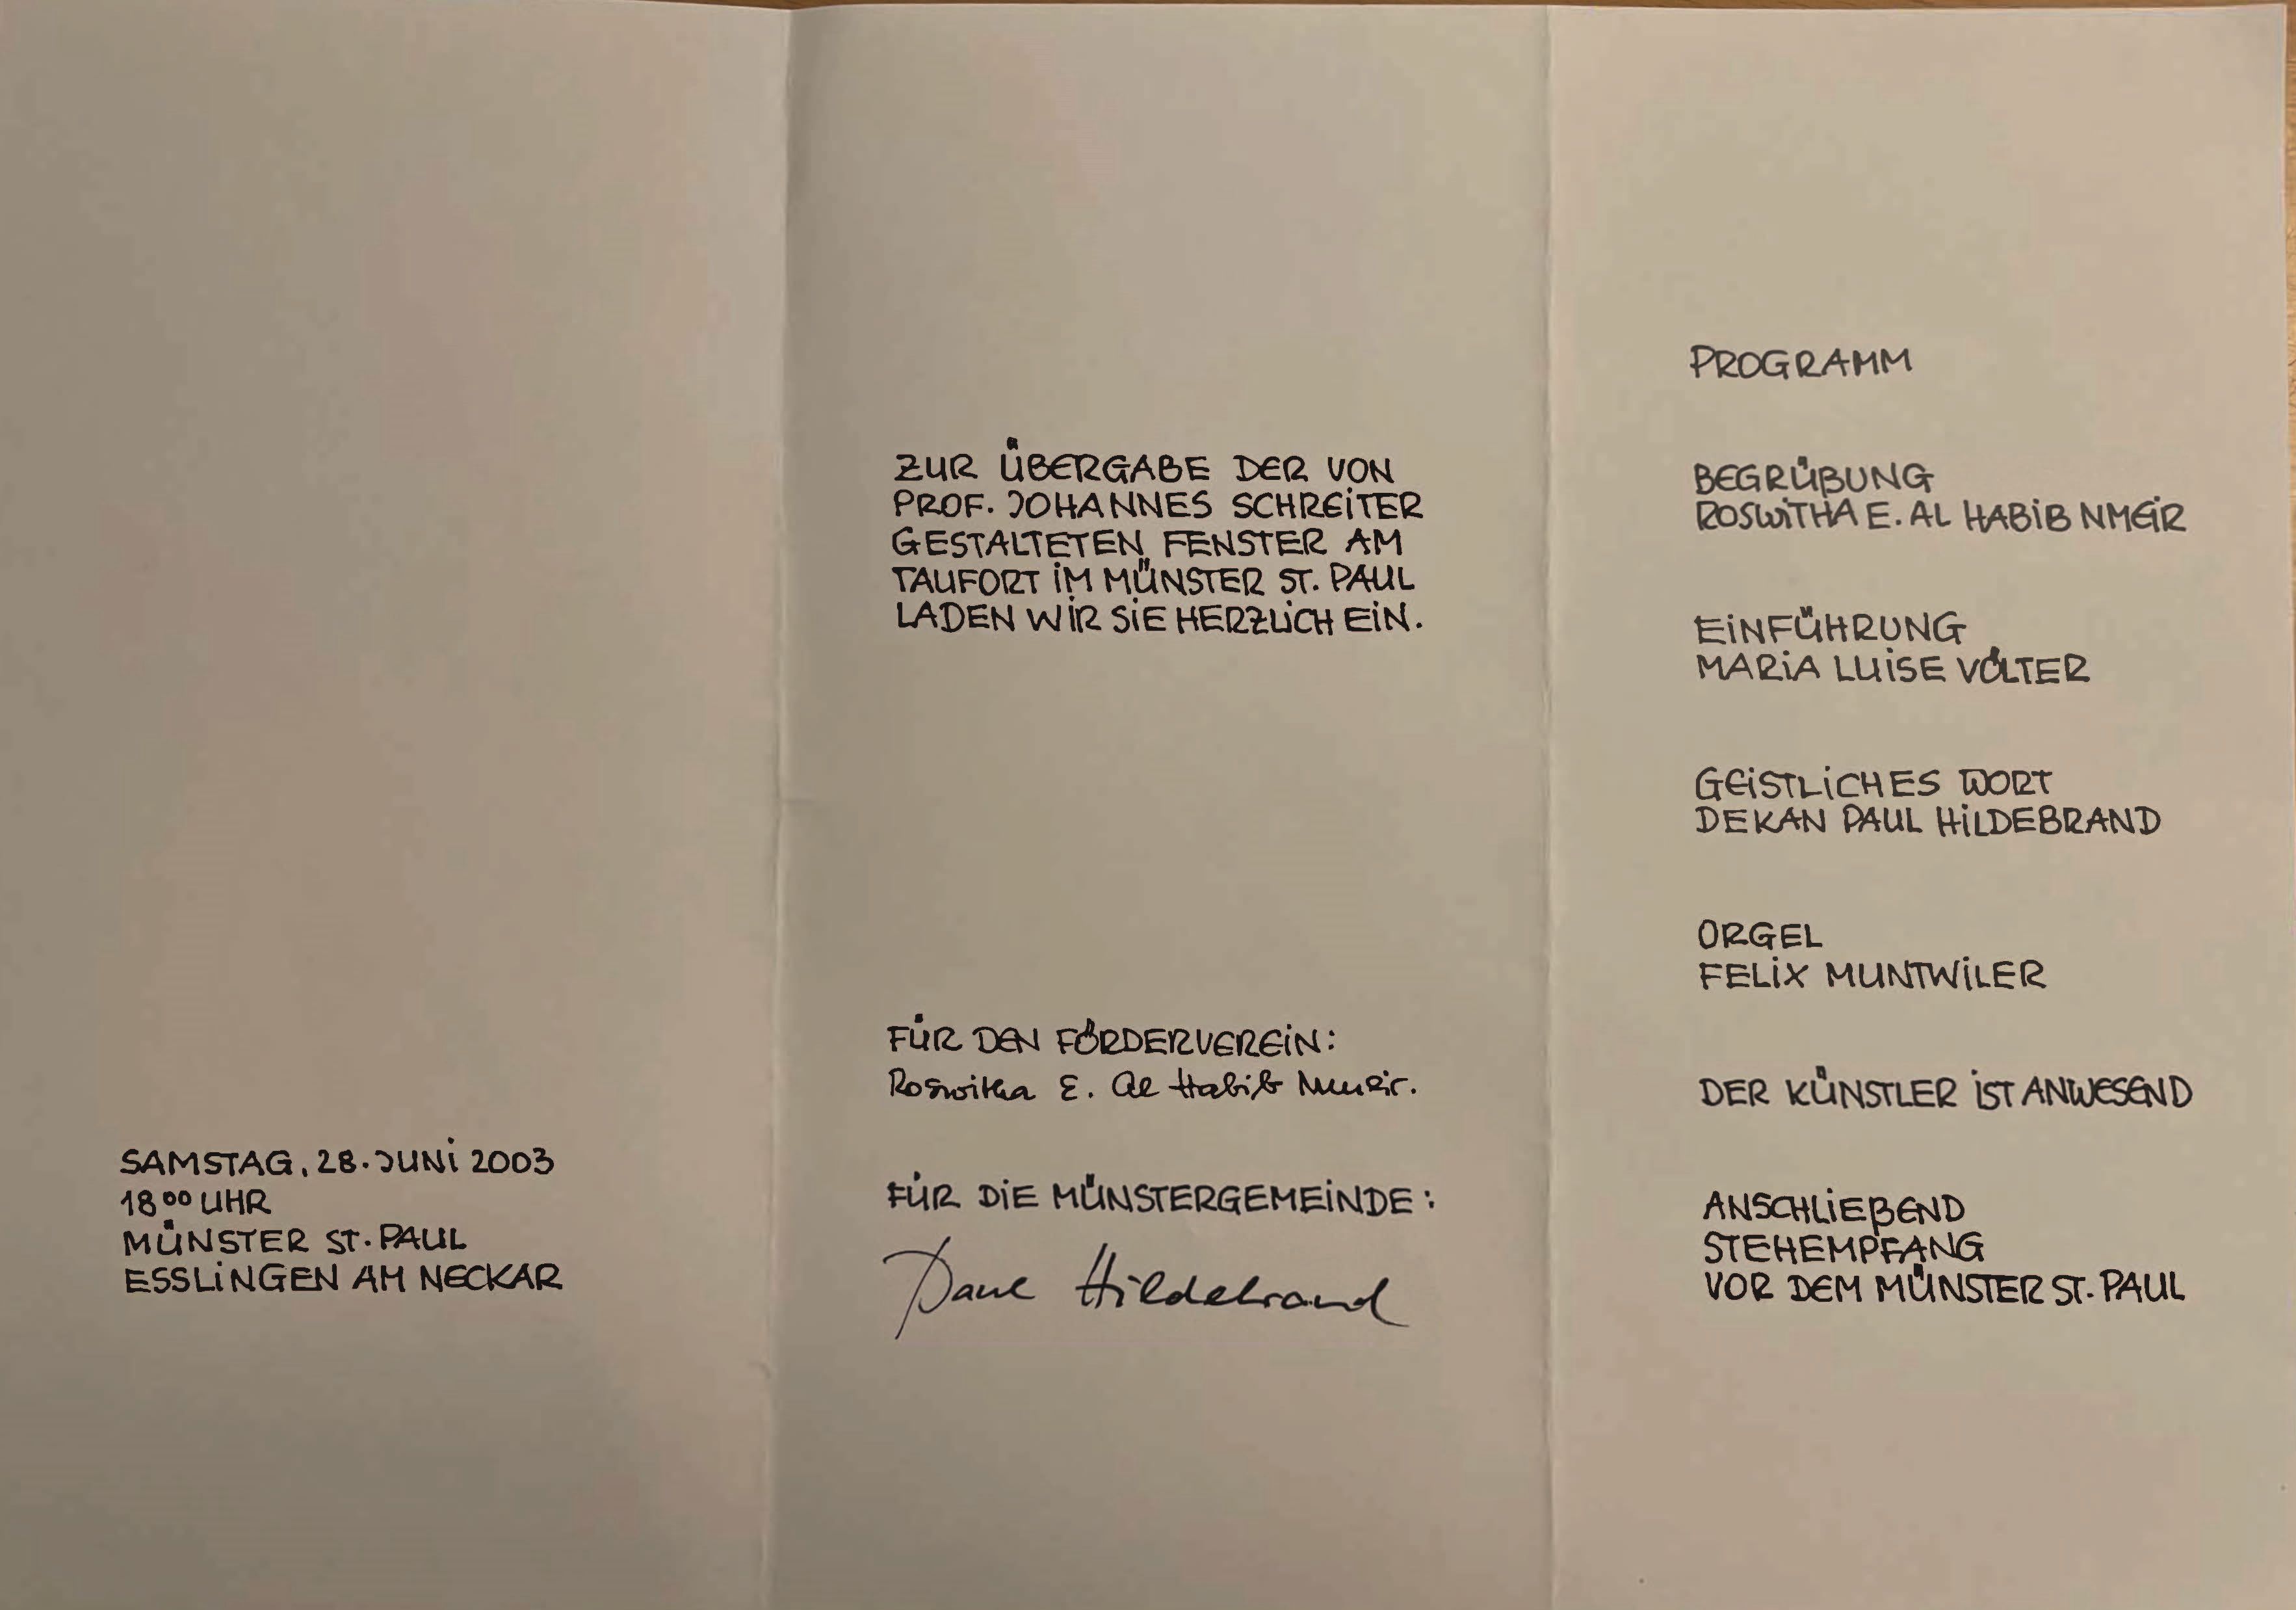 SAMSTAG, 28. JUNI 2003
18⁰⁰ UHR
MÜNSTER ST. PAUL
ESSLINGEN AM NECKAR
ZUR ÜBERGABE DER VON
PROF. JOHANNES SCHREITER
GESTALTETEN FENSTER AM
TAUFORT IM MÜNSTER ST. PAUL
LADEN WIR SIE HERZLICH EIN.
FÜR DEN FÖRDERVEREIN:
Roswitha E. Al Habib Nmeir.
FÜR DIE MÜNSTERGEMEINDE:
Paul Hildebrand
PROGRAMM
BEGRÜßUNG
ROSWITHA E. AL HABIB NMEIR
EINFÜHRUNG
MARIA LUISE VÖLTER
GEISTLICHES WORT
DEKAN PAUL HILDEBRAND
ORGEL
FELIX MUNTWILER
DER KÜNSTLER IST ANWESEND
ANSCHLIEßEND
STEHEMPFANG
VOR DEM MÜNSTER ST. PAUL